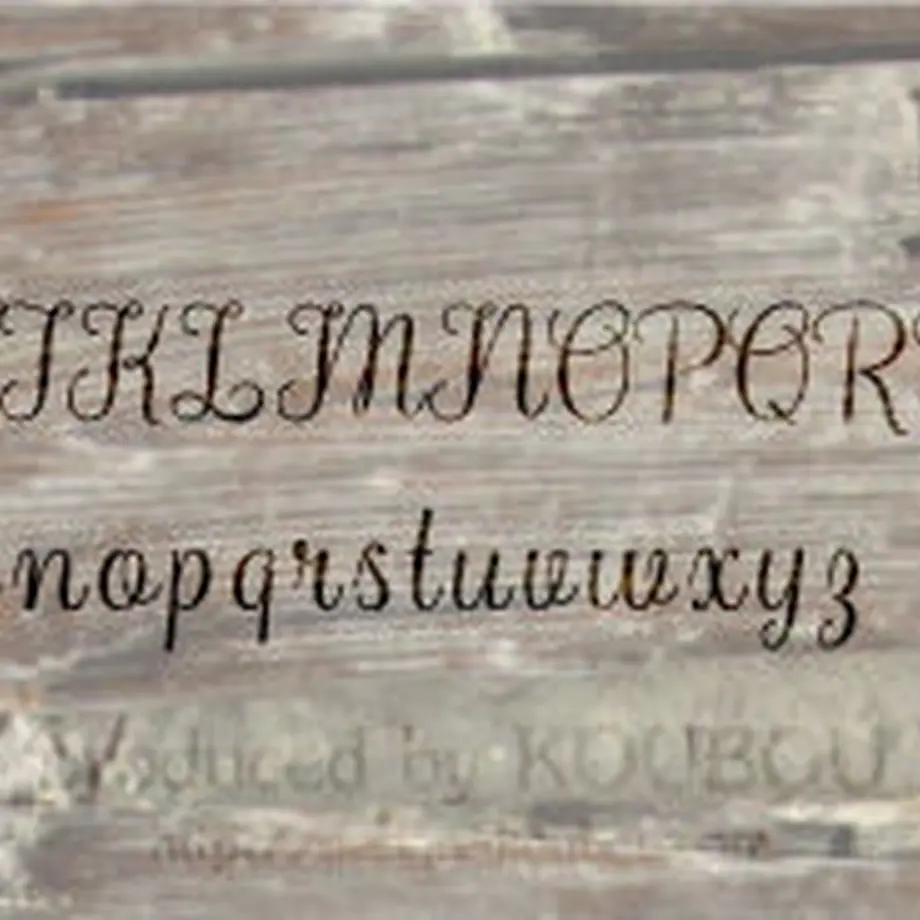 JKLMNOPQR
nopqrstuvwxyz
Woduced by KOUBOU